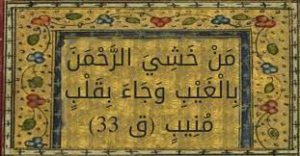 مَنْ خَشِيَ الرَّحْمَنَ
بِالْغَيْبِ وَجَاءَ بِقَلْبٍ
مُنِيبٍ (ق 33)